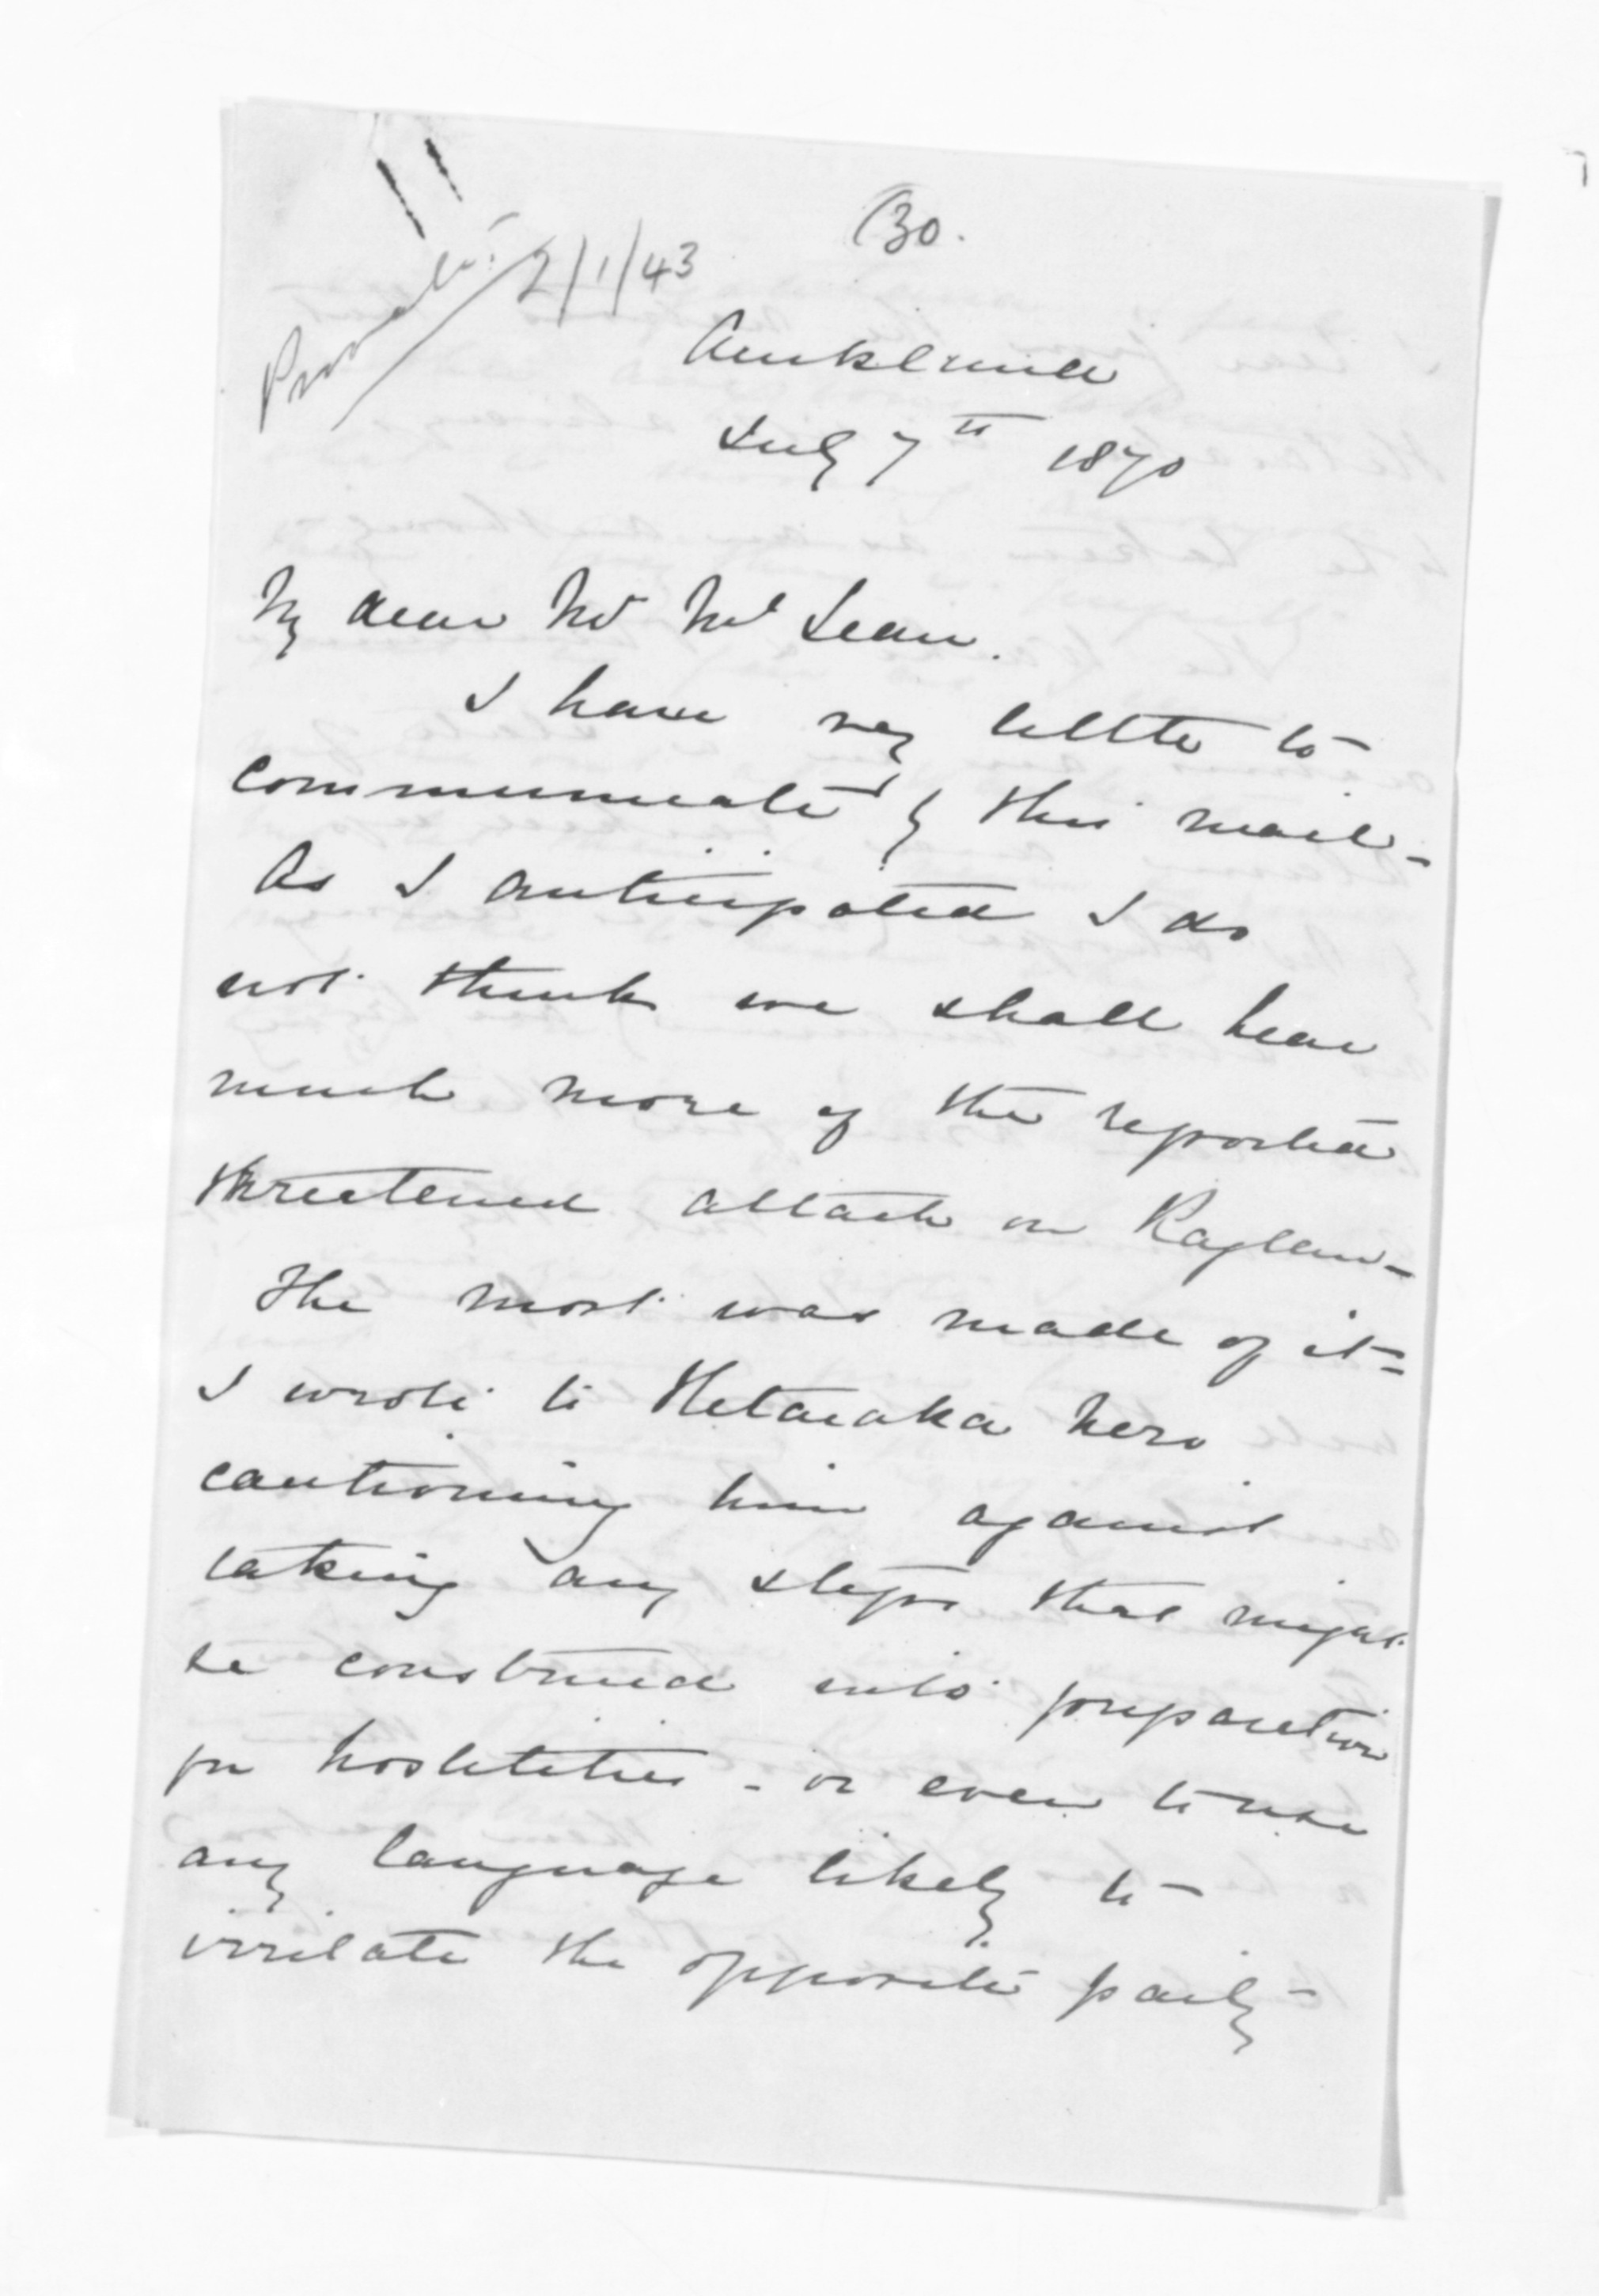 (30.
Private.
2/1/43
Auckland
July 7th 1870
My dear Mr McLean.
I have very little to
communicate by this mail -
As I anticipated I do
not think we shall hear
much more of the reported
threatened attack on Raglan -
The most was made of it -
I wrote to Hetaraka Nero
cautioning him against
taking any steps that might
be construed into preparation
for hostilities - or even to use
any language likely to
irritate the opposite party -